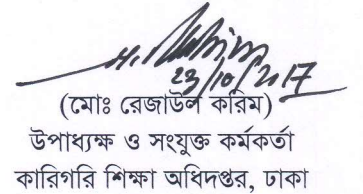 23/10/2017
(মোঃ রেজাউল করিম)
উপাধ্যক্ষ ও সংযুক্ত কর্মকর্তা
কারিগরি শিক্ষা অধিদপ্তর, ঢাকা